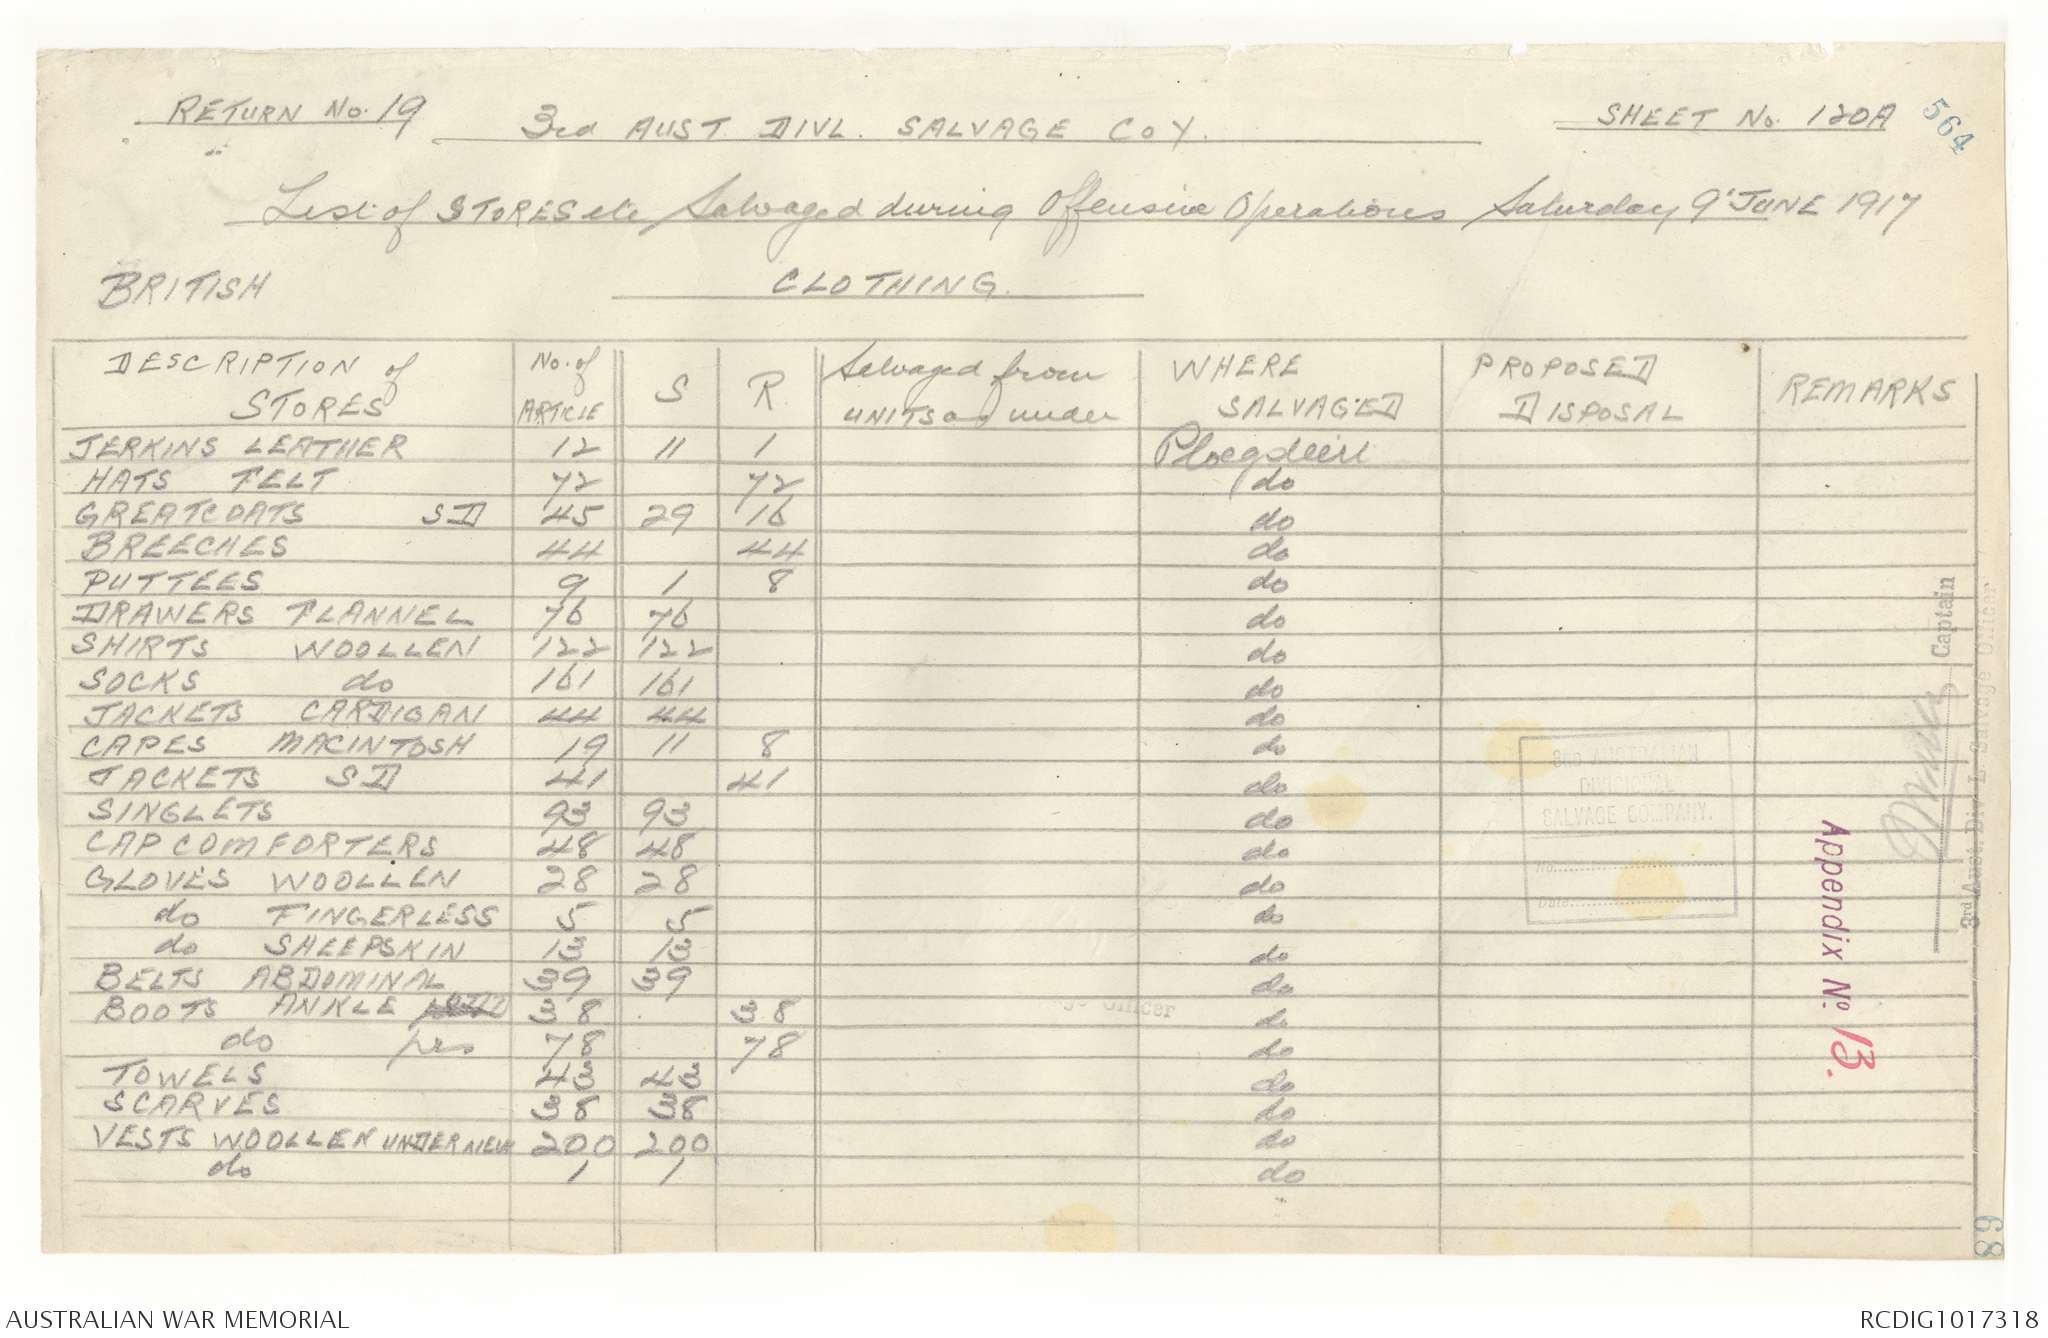 RETURN No. 19
3rd AUST. DIVL. SALVAGE COY.
SHEET No. 120A
564
List of STORES etc Salvaged during Offensive Operations Saturday 9' JUNE 1917
BRITISH
CLOTHING.
DESCRIPTION of STORES No. of ARTICLE S R Salvaged from UNITS as under WHERE SALVAGED PROPOSED DISPOSAL REMARKS
JERKINS LEATHER 12 11 1 Ploegsteert
HATS FELT 72 72 do
GREATCOATS SD 45 29 16 do
BREECHES 44 44 do
PUTTEES 9 1 8 do
DRAWERS FLANNEL 76 76 do
SHIRTS WOOLLEN 122 122 do
SOCKS do 161 161 do
JACKETS CARDIGAN 44 44 do
CAPES MACINTOSH 19 11 8 do
JACKETS SD 41 41 do
SINGLETS 93 93 do
CAP COMFORTERS 48 48 do
GLOVES WOOLLEN 28 28 do
do FINGERLESS 5 5 do
do SHEEPSKIN 13 13 do
BELTS ABDOMINAL 39 39 do
BOOTS ANKLE 38 38 do
do prs 78 78 do
TOWELS 43 43 do
SCARVES 38 38 do
VESTS WOOLLEN UNDER NEW 200 200 do
do 1 1 do
3RD AUSTRALIAN
DIVISIONAL
SALVAGE COMPANY.
No.
Date
Officer
Appendix No 13.
Captain
3rd Aust. Div'l. Salvage Officer
89
AUSTRALIAN WAR MEMORIAL
RCDIG1017318